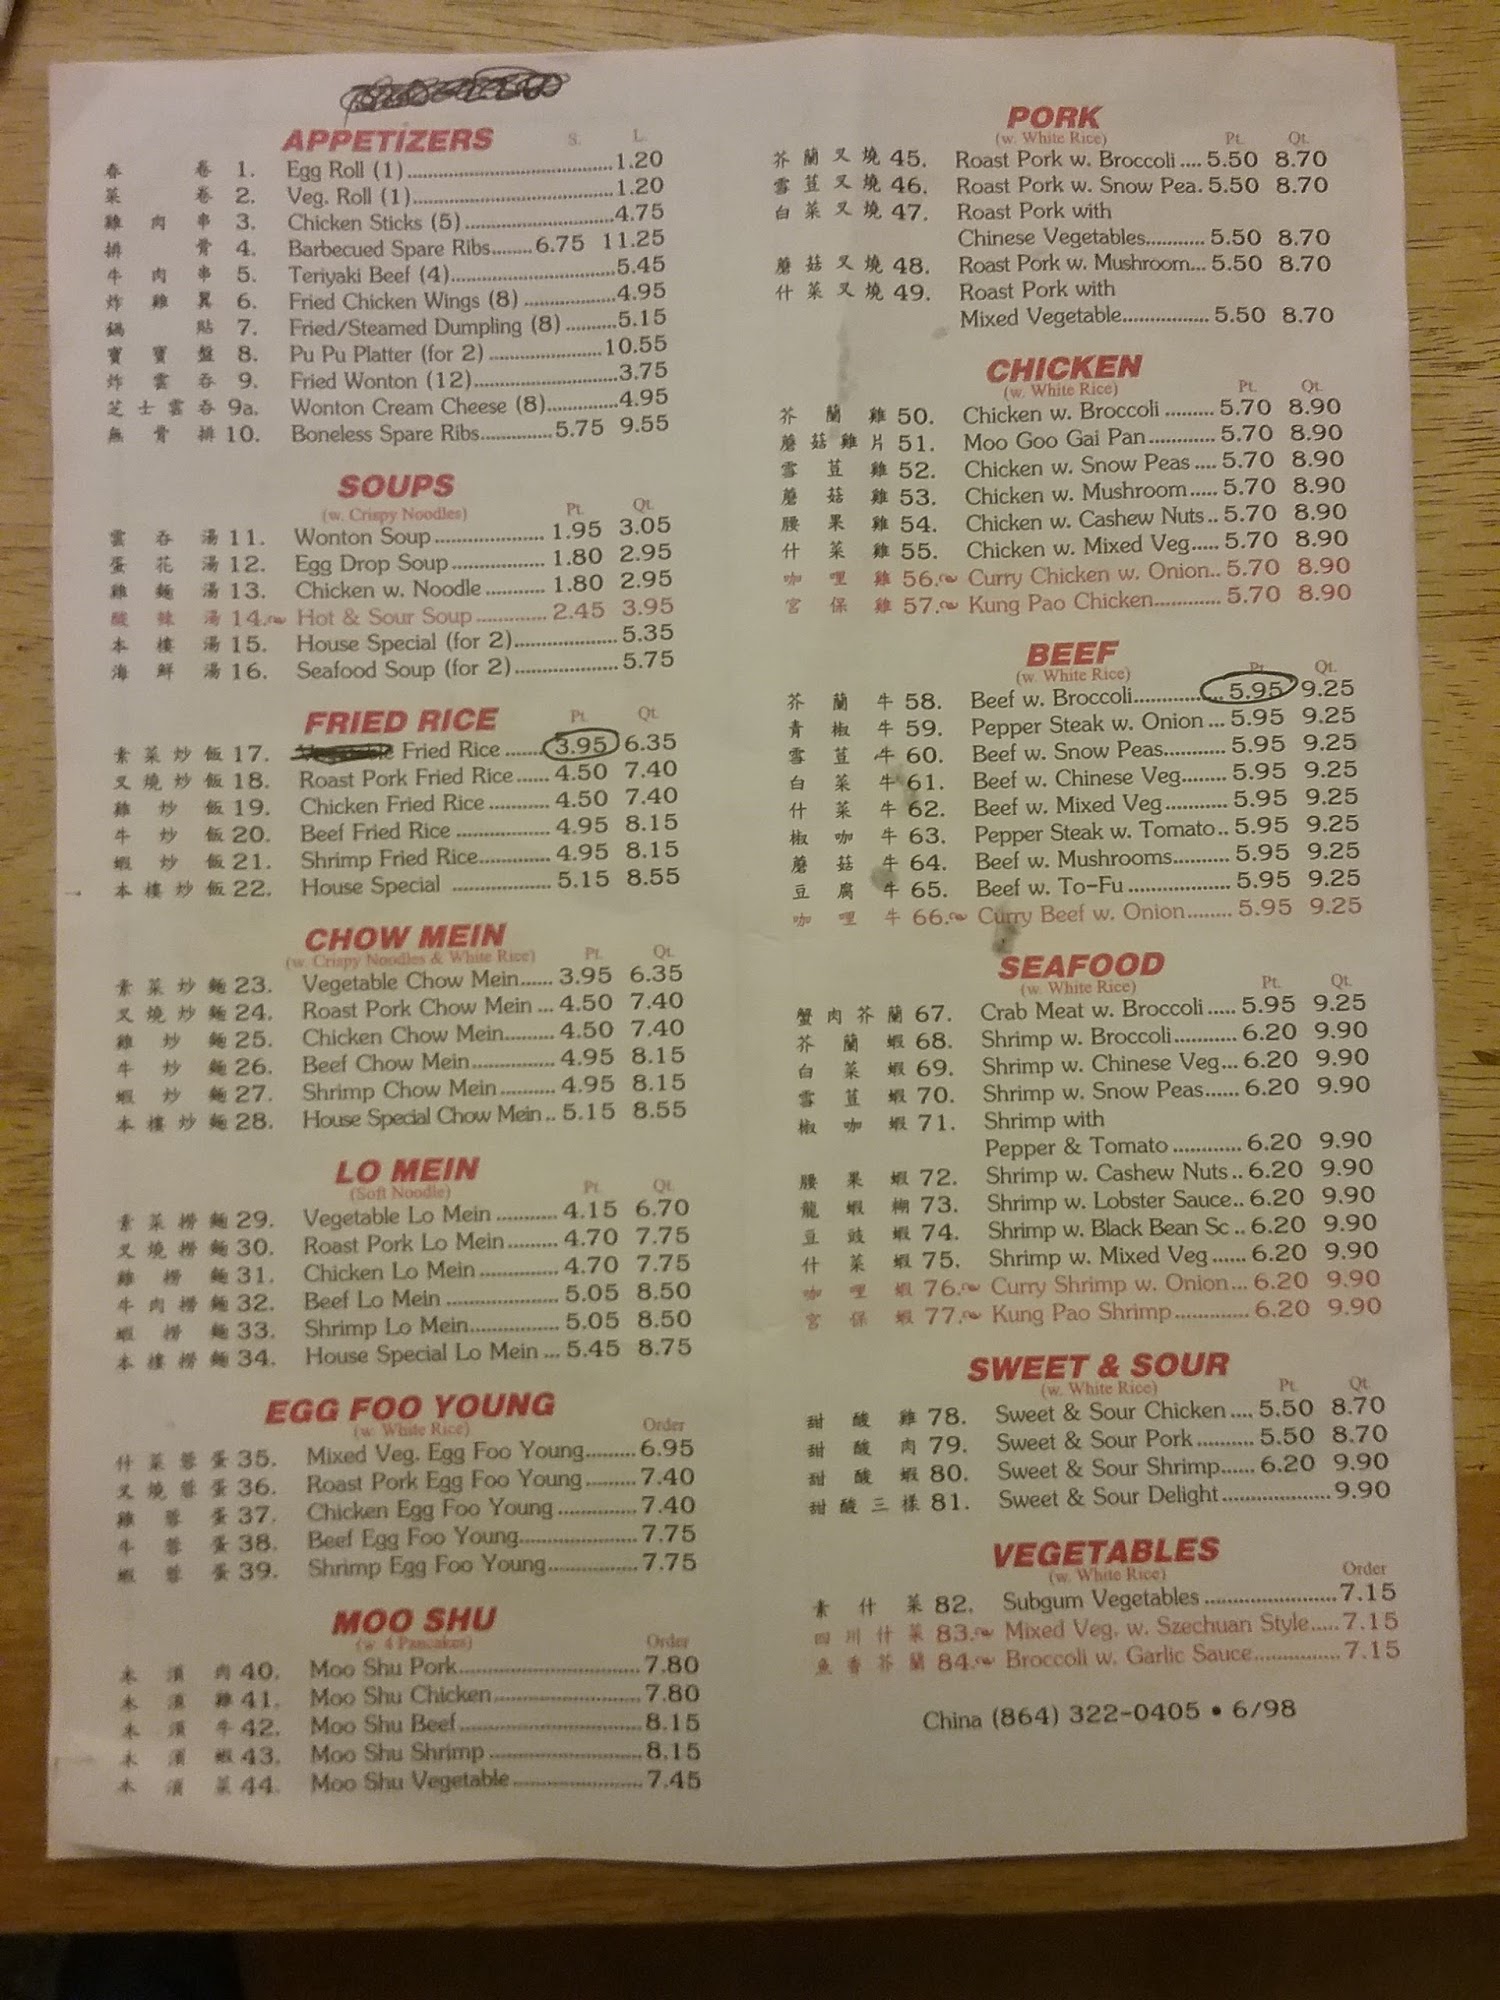 APPETIZERS
S. L.
春 卷 1. Egg Roll (1) 1.20
菜 卷 2. Veg. Roll (1) 1.20
雞 肉 串 3. Chicken Sticks (5) 4.75
排 骨 4. Barbecued Spare Ribs 6.75 11.25
牛 肉 串 5. Teriyaki Beef (4) 5.45
炸 雞 翼 6. Fried Chicken Wings (8) 4.95
鍋 貼 7. Fried/Steamed Dumpling (8) 5.15
寶 寶 盤 8. Pu Pu Platter (for 2) 10.55
炸 雲 吞 9. Fried Wonton (12) 3.75
芝 士 雲 吞 9a. Wonton Cream Cheese (8) 4.95
無 骨 排 10. Boneless Spare Ribs 5.75 9.55
SOUPS
(w. Crispy Noodles) Pt. Qt.
雲 吞 湯 11. Wonton Soup 1.95 3.05
蛋 花 湯 12. Egg Drop Soup 1.80 2.95
雞 麵 湯 13. Chicken w. Noodle 1.80 2.95
酸 辣 湯 14. Hot & Sour Soup 2.45 3.95
本 樓 湯 15. House Special (for 2) 5.35
海 鮮 湯 16. Seafood Soup (for 2) 5.75
FRIED RICE
Pt. Qt.
素 菜 炒 飯 17. Fried Rice 3.95 6.35
叉 燒 炒 飯 18. Roast Pork Fried Rice 4.50 7.40
雞 炒 飯 19. Chicken Fried Rice 4.50 7.40
牛 炒 飯 20. Beef Fried Rice 4.95 8.15
蝦 炒 飯 21. Shrimp Fried Rice 4.95 8.15
→ 本 樓 炒 飯 22. House Special 5.15 8.55
CHOW MEIN
(w. Crispy Noodles & White Rice) Pt. Qt.
素 菜 炒 麵 23. Vegetable Chow Mein 3.95 6.35
叉 燒 炒 麵 24. Roast Pork Chow Mein 4.50 7.40
雞 炒 麵 25. Chicken Chow Mein 4.50 7.40
牛 炒 麵 26. Beef Chow Mein 4.95 8.15
蝦 炒 麵 27. Shrimp Chow Mein 4.95 8.15
本 樓 炒 麵 28. House Special Chow Mein 5.15 8.55
LO MEIN
(Soft Noodle) Pt. Qt.
素 菜 撈 麵 29. Vegetable Lo Mein 4.15 6.70
叉 燒 撈 麵 30. Roast Pork Lo Mein 4.70 7.75
雞 撈 麵 31. Chicken Lo Mein 4.70 7.75
牛 肉 撈 麵 32. Beef Lo Mein 5.05 8.50
蝦 撈 麵 33. Shrimp Lo Mein 5.05 8.50
本 樓 撈 麵 34. House Special Lo Mein 5.45 8.75
EGG FOO YOUNG
(w. White Rice) Order
什 菜 蓉 蛋 35. Mixed Veg. Egg Foo Young 6.95
叉 燒 蓉 蛋 36. Roast Pork Egg Foo Young 7.40
雞 蓉 蛋 37. Chicken Egg Foo Young 7.40
牛 蓉 蛋 38. Beef Egg Foo Young 7.75
蝦 蓉 蛋 39. Shrimp Egg Foo Young 7.75
MOO SHU
(w. 4 Pancakes) Order
木 須 肉 40. Moo Shu Pork 7.80
木 須 雞 41. Moo Shu Chicken 7.80
木 須 牛 42. Moo Shu Beef 8.15
木 須 蝦 43. Moo Shu Shrimp 8.15
木 須 菜 44. Moo Shu Vegetable 7.45
PORK
(w. White Rice) Pt. Qt.
芥 蘭 叉 燒 45. Roast Pork w. Broccoli 5.50 8.70
雪 荳 叉 燒 46. Roast Pork w. Snow Pea. 5.50 8.70
白 菜 叉 燒 47. Roast Pork with
Chinese Vegetables 5.50 8.70
蘑 菇 叉 燒 48. Roast Pork w. Mushroom 5.50 8.70
什 菜 叉 燒 49. Roast Pork with
Mixed Vegetable 5.50 8.70
CHICKEN
(w. White Rice) Pt. Qt.
芥 蘭 雞 50. Chicken w. Broccoli 5.70 8.90
蘑 菇 雞 片 51. Moo Goo Gai Pan 5.70 8.90
雪 荳 雞 52. Chicken w. Snow Peas 5.70 8.90
蘑 菇 雞 53. Chicken w. Mushroom 5.70 8.90
腰 果 雞 54. Chicken w. Cashew Nuts 5.70 8.90
什 菜 雞 55. Chicken w. Mixed Veg 5.70 8.90
咖 哩 雞 56. Curry Chicken w. Onion 5.70 8.90
宮 保 雞 57. Kung Pao Chicken 5.70 8.90
BEEF
(w. White Rice) Pt. Qt.
芥 蘭 牛 58. Beef w. Broccoli 5.95 9.25
青 椒 牛 59. Pepper Steak w. Onion 5.95 9.25
雪 荳 牛 60. Beef w. Snow Peas 5.95 9.25
白 菜 牛 61. Beef w. Chinese Veg 5.95 9.25
什 菜 牛 62. Beef w. Mixed Veg 5.95 9.25
椒 咖 牛 63. Pepper Steak w. Tomato 5.95 9.25
蘑 菇 牛 64. Beef w. Mushrooms 5.95 9.25
豆 腐 牛 65. Beef w. To-Fu 5.95 9.25
咖 哩 牛 66. Curry Beef w. Onion 5.95 9.25
SEAFOOD
(w. White Rice) Pt. Qt.
蟹 肉 芥 蘭 67. Crab Meat w. Broccoli 5.95 9.25
芥 蘭 蝦 68. Shrimp w. Broccoli 6.20 9.90
白 菜 蝦 69. Shrimp w. Chinese Veg 6.20 9.90
雪 荳 蝦 70. Shrimp w. Snow Peas 6.20 9.90
椒 咖 蝦 71. Shrimp with
Pepper & Tomato 6.20 9.90
腰 果 蝦 72. Shrimp w. Cashew Nuts 6.20 9.90
龍 蝦 糊 73. Shrimp w. Lobster Sauce 6.20 9.90
豆 豉 蝦 74. Shrimp w. Black Bean Sc 6.20 9.90
什 菜 蝦 75. Shrimp w. Mixed Veg 6.20 9.90
咖 哩 蝦 76. Curry Shrimp w. Onion 6.20 9.90
宮 保 蝦 77. Kung Pao Shrimp 6.20 9.90
SWEET & SOUR
(w. White Rice) Pt. Qt.
甜 酸 雞 78. Sweet & Sour Chicken 5.50 8.70
甜 酸 肉 79. Sweet & Sour Pork 5.50 8.70
甜 酸 蝦 80. Sweet & Sour Shrimp 6.20 9.90
甜 酸 三 樣 81. Sweet & Sour Delight 9.90
VEGETABLES
(w. White Rice) Order
素 什 菜 82. Subgum Vegetables 7.15
四 川 什 菜 83. Mixed Veg. w. Szechuan Style 7.15
魚 香 芥 蘭 84. Broccoli w. Garlic Sauce 7.15
China (864) 322-0405 • 6/98